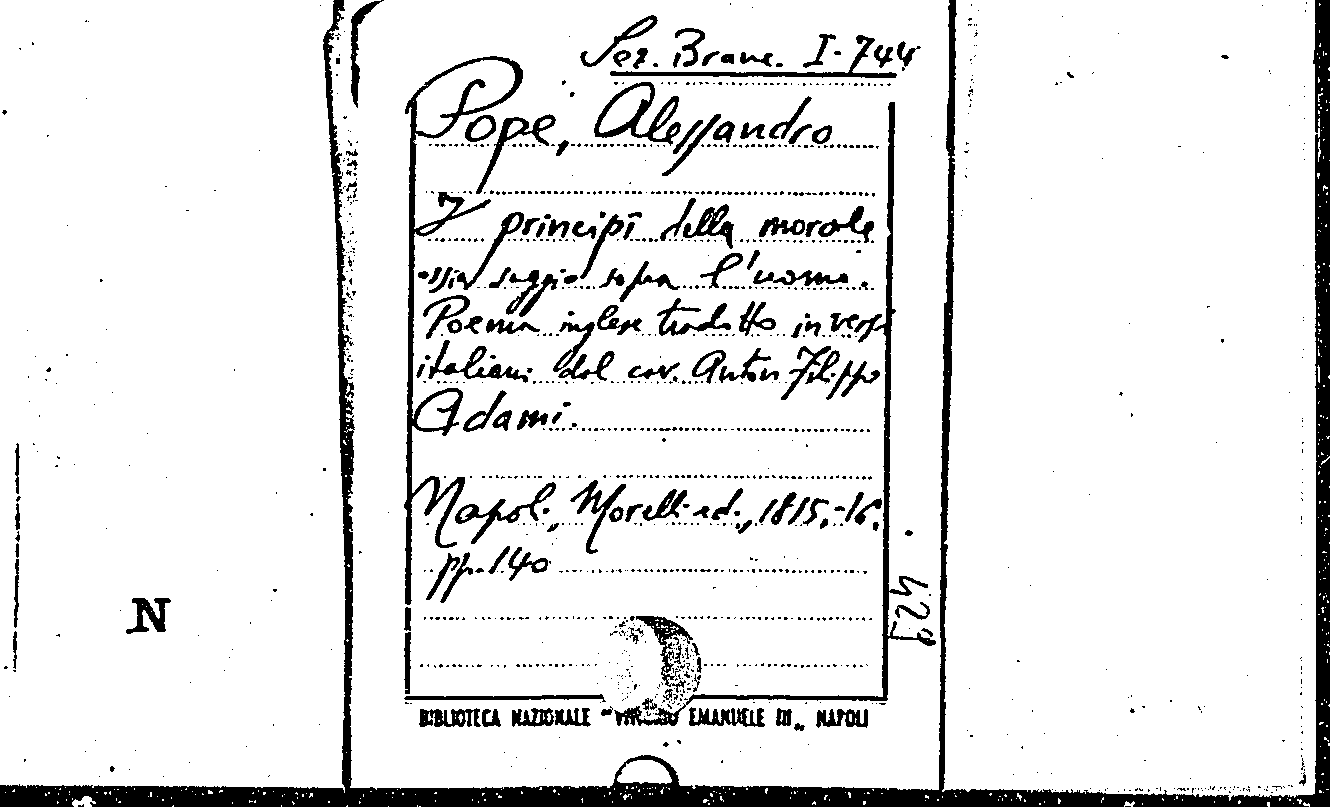 Sez. Branc. I-744
Pope, Alessandro
I principî della morale
ossia saggio sopra l'uomo.
Poema inglese tradotto in versi
italiani dal cav. Anton Filippo
Adami.
Napoli, Morelli ed., 1815.-16.
pp. 140
N
BIBLIOTECA NAZIONALE "VITTORIO EMANUELE III" NAPOLI